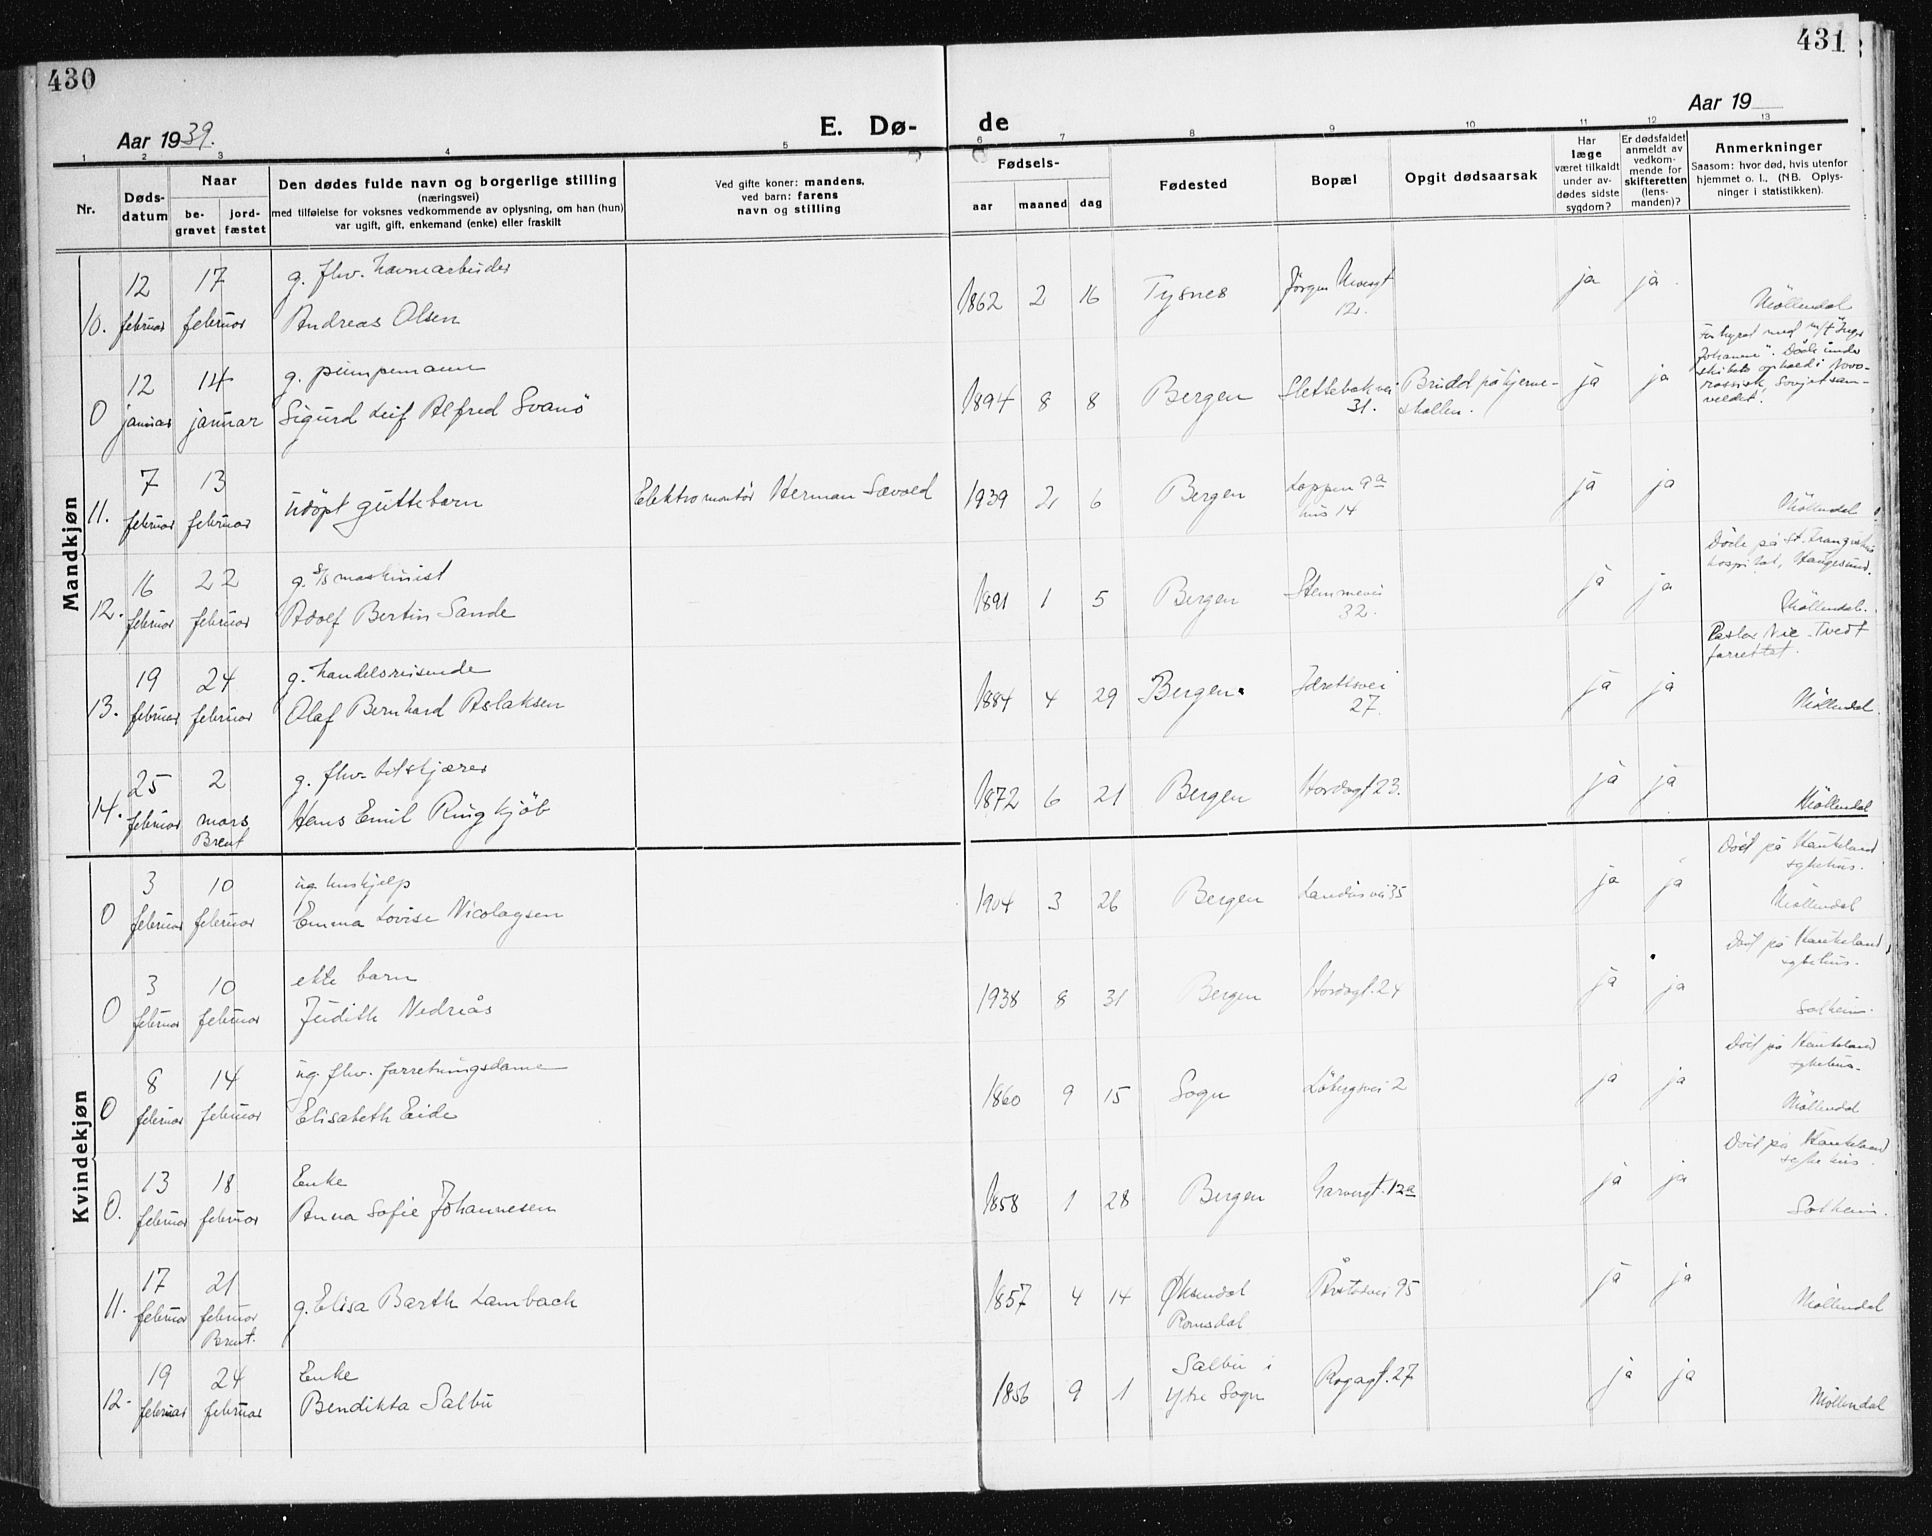 430
431
Aar 1939.
E. Dø-
de
Aar 19
1 2 3 4 5 6 7 8 9 10 11 12 13
Nr.
Døds-
datum
Naar
be-
gravet
jord-
fæstet
Den dødes fulde navn og borgerlige stilling
(næringsvei)
med tilføielse for voksnes vedkommende av oplysning, om han (hun)
var ugift, gift, enkemand (enke) eller fraskilt
Ved gifte koner: mandens,
ved barn: farens
navn og stilling
Fødsels-
aar maaned dag
Fødested
Bopæl
Opgit dødsaarsak
Har
læge
været tilkaldt
under av-
dødes sidste
sygdom?
Er dødsfaldet
anmeldt av
vedkom-
mende for
skifteretten
(lens-
manden)?
Anmerkninger
Saasom: hvor død, hvis utenfor
hjemmet o. l., (NB. Oplys-
ninger i statistikken).
Mandkjøn
10. 12 februar 17 februar
g. fhv. havnearbeider
Andreas Olsen
1862 2 16 Tysnes
12.
ja ja
Møllendal
0 12 januar 14 januar
g. pumpemann
Sigurd Leif Alfred Svanö
1894 8 8 Bergen
Slettebakvei
31.
Brudd på hjerne-
skallen.
ja ja
Forhyret med m/t "Inger
Johanne". Död under
skibets ophold i Novo-
rossisk, Sovjetsam-
veldet.
11. 7 februar 13 februar
udöpt guttebarn
Elektromontör Herman Sævold
1939 2 6 Bergen
Loppen 9a
hus 14
ja ja
Møllendal
12. 16 februar 22 februar
g. s/s maskinist
Adolf Bertin Sande
1891 1 5 Bergen
Stemmevei
32.
ja ja
Död på St. Franciskus
hospital, Haugesund.
Møllendal.
13. 19 februar 24 februar
g. handelsreisende
Olaf Bernhard Aslaksen
1884 4 29 Bergen.
Idrettsvei
27.
ja ja
Pastor Nic. Tvedt
forrettet.
Møllendal.
14. 25 februar 2 mars
Brent
g. fhv.
Hans Emil Ringkjöb
1872 6 21 Bergen
Hordagt 23.
ja ja
Møllendal
Kvindekjøn
0 3 februar 10 februar
ug. hushjelp
Emma Lovise Nicolaysen
1904 3 26 Bergen
Landåsvei 35
ja ja
Död på Haukeland
sykehus.
Møllendal
0 3 februar 10 februar
ekte barn
Judith Nedreås
1938 8 31 Bergen
Hordagt. 24
ja ja
Död på Haukeland
sykehus.
Solheim.
0 8 februar 14 februar
ug. fhv. forretningsdame
Elisabeth Eide
1860 9 15 Sogn
Löbergsvei 2
ja ja
Död på Haukeland
sykehus.
Møllendal
0. 13 februar 18 februar
Enke
Anna Sofie Johannesen
1858 1 28 Bergen
Garvergt. 12a
ja ja
Död på Haukeland
sykehus.
Solheim.
11. 17 februar 21 februar
Brent.
g. Elisa Barth Lambach
1857 4 14 Øksendal
Romsdal
Årstadvei 95
ja ja
Møllendal
12. 19 februar 24 februar
Enke
Bendikta Salbu
1856 9 1 Salbu i
Ytre Sogn
Rogagt. 27
ja ja
Møllendal